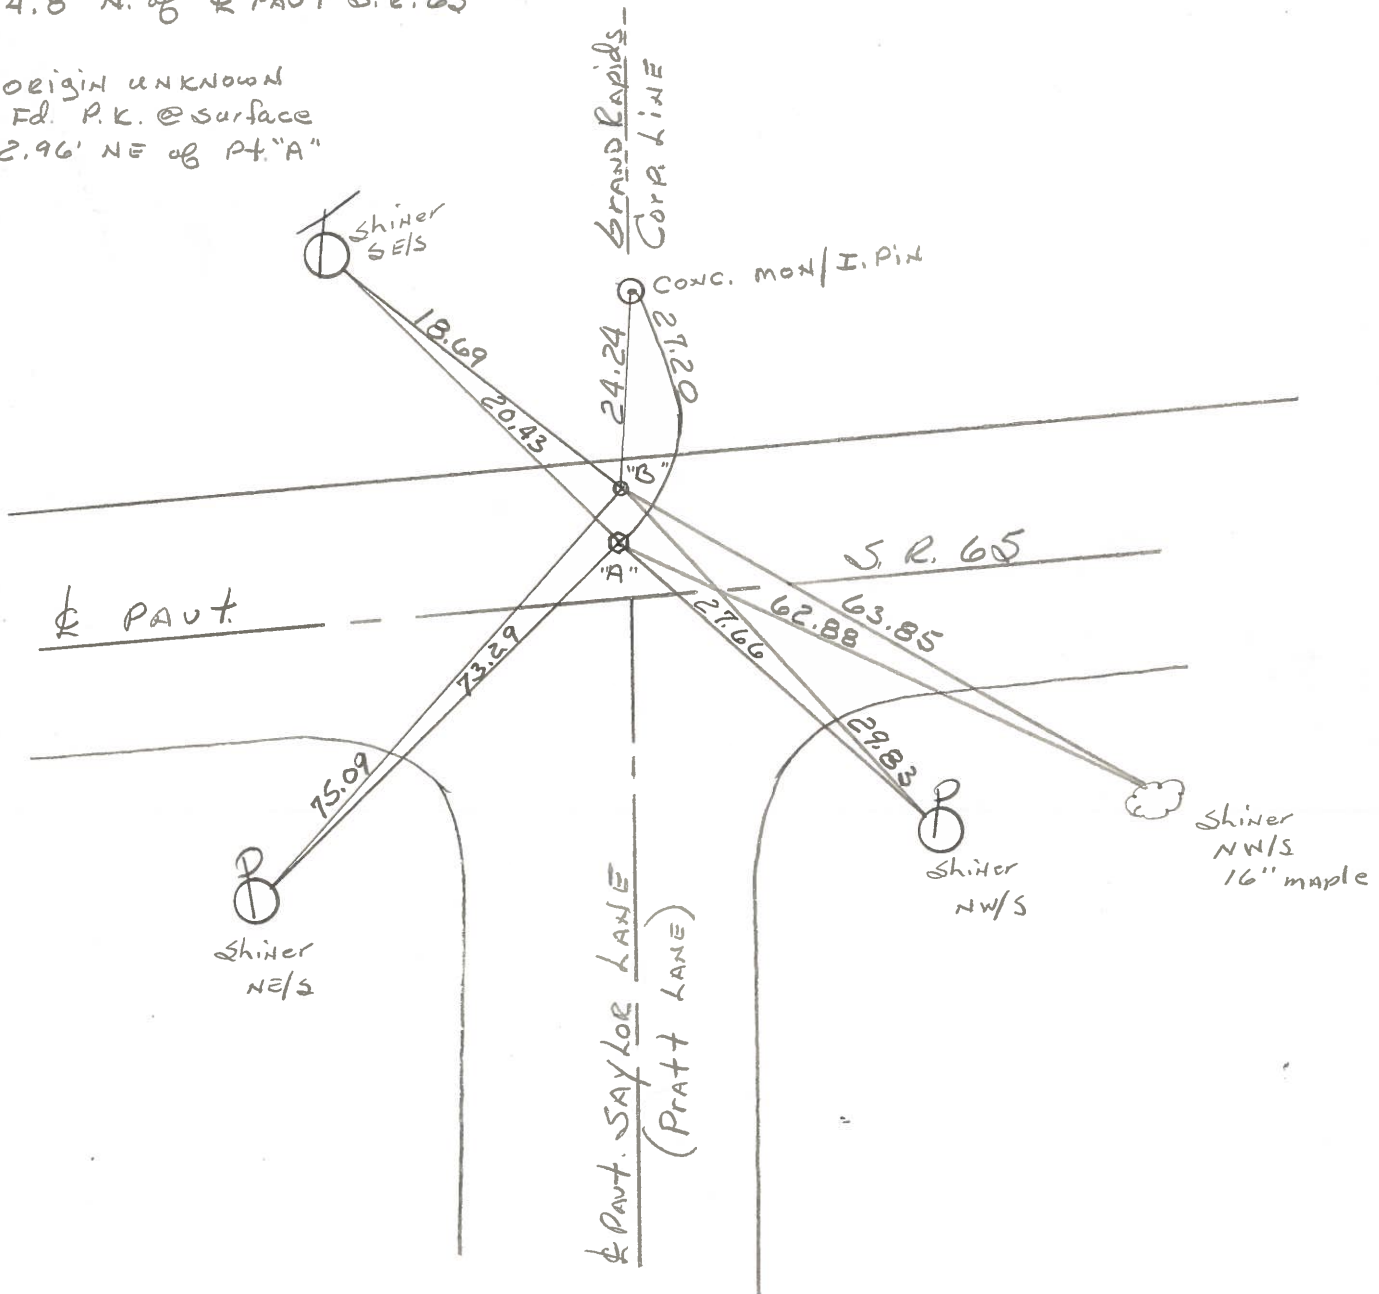 4.8' N. of ℄ PAVT S.R. 65
origin unknown
Fd. P.K. @ surface
2.96' NE of Pt. "A"
Grand Rapids
Corp. Line
Shiner
SE/S
Conc. Mon/I. Pin
18.69
20.43
24.24
27.20
"B"
"A"
S. R. 65
℄ PAVt.
27.66
62.88
63.85
73.29
75.09
29.83
P
Shiner
NE/S
P
Shiner
NW/S
Shiner
NW/S
16" maple
℄ Pavt. Saylor Lane
(Pratt Lane)